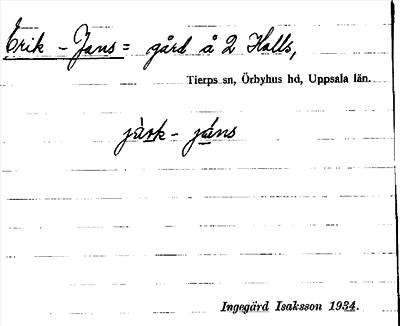 Erik - Jans = gård å 2 Halls,
Tierps sn, Örbyhus hd, Uppsala län.
järk - jáns
Ingegärd Isaksson 1934.